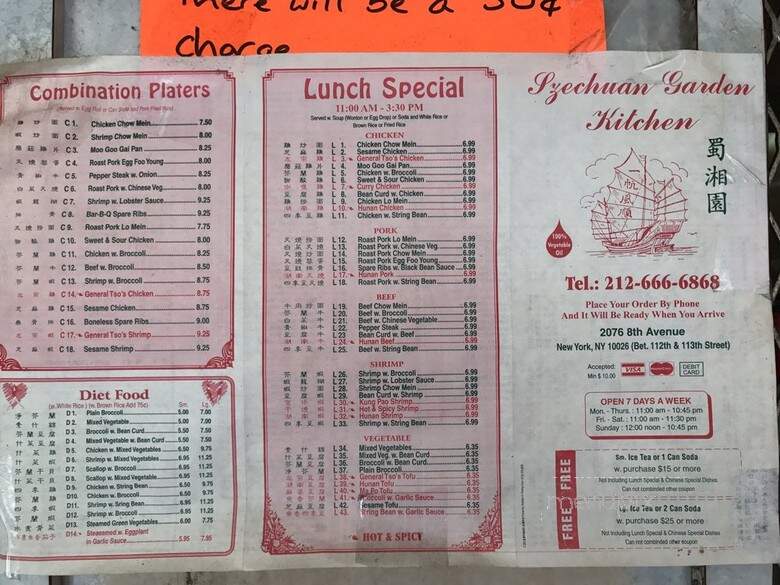 There will be a 50¢
charge
Combination Platers
(Served w. Egg Roll or Can Soda and Pork Fried Rice)
C 1. Chicken Chow Mein 7.50
C 2. Shrimp Chow Mein 8.00
C 3. Moo Goo Gai Pan 8.25
C 4. Roast Pork Egg Foo Young 8.00
C 5. Pepper Steak w. Onion 8.25
C 6. Roast Pork w. Chinese Veg. 8.00
C 7. Shrimp w. Lobster Sauce 9.25
C 8. Bar-B-Q Spare Ribs 9.25
C 9. Roast Pork Lo Mein 7.75
C 10. Sweet & Sour Chicken 8.00
C 11. Chicken w. Broccoli 8.25
C 12. Beef w. Broccoli 8.50
C 13. Shrimp w. Broccoli 8.75
C 14. General Tso's Chicken 8.75
C 15. Sesame Chicken 8.75
C 16. Boneless Spare Ribs 9.00
C 17. General Tso's Shrimp 9.25
C 18. Sesame Shrimp 9.25
Diet Food
(w. White Rice) (w. Brown Rice Add 75¢) Sm. Lg.
D 1. Plain Broccoli 5.00 7.00
D 2. Mixed Vegetable 5.00 7.00
D 3. Broccoli w. Bean Curd 5.50 7.50
D 4. Mixed Vegetable w. Bean Curd 5.50 7.50
D 5. Chicken w. Mixed Vegetable 6.50 9.75
D 6. Shrimp w. Mixed Vegetables 6.95 11.25
D 7. Scallop w. Broccoli 6.95 11.25
D 8. Scallop w. Mixed Vegetable 6.95 11.25
D 9. Chicken w. String Bean 6.50 9.75
D10. Chicken w. Broccoli 6.50 9.75
D11. Shrimp w. String Bean 6.95 11.25
D12. Shrimp w. Broccoli 6.95 11.25
D13. Steamed Green Vegetables 6.00 7.75
D14. Steasmed w. Eggplant
in Garlic Sauce 5.95 7.95
Lunch Special
11:00 AM - 3:30 PM
Served w. Soup (Wonton or Egg Drop) or Soda and White Rice or
Brown Rice or Fried Rice
CHICKEN
L 1. Chicken Chow Mein 6.99
L 2. Sesame Chicken 6.99
L 3. General Tso's Chicken 6.99
L 4. Moo Goo Gai Pan 6.99
L 5. Chicken w. Broccoli 6.99
L 6. Sweet & Sour Chicken 6.99
L 7. Curry Chicken 6.99
L 8. Bean Curd w. Chicken 6.99
L 9. Chicken Lo Mein 6.99
L 10. Hunan Chicken 6.99
L 11. Chicken w. String Bean 6.99
PORK
L12. Roast Pork Lo Mein 6.99
L13. Roast Pork w. Chinese Veg. 6.99
L14. Roast Pork Chow Mein 6.99
L15. Roast Pork Egg Foo Young 6.99
L16. Spare Ribs w. Black Bean Sauce 6.99
L17. Hunan Pork 6.99
L18. Roast Pork w. String Bean 6.99
BEEF
L19. Beef Chow Mein 6.99
L20. Beef w. Broccoli 6.99
L21. Beef w. Chinese Vegetable 6.99
L22. Pepper Steak 6.99
L23. Bean Curd w. Beef 6.99
L24. Hunan Beef 6.99
L25. Beef w. String Bean 6.99
SHRIMP
L26. Shrimp w. Broccoli 6.99
L27. Shrimp w. Lobster Sauce 6.99
L28. Shrimp Chow Mein 6.99
L29. Bean Curd w. Shrimp 6.99
L30. Kung Pao Shrimp 6.99
L31. Hot & Spicy Shrimp 6.99
L32. Hunan Shrimp 6.99
L33. Shrimp w. String Bean 6.99
VEGETABLE
L34. Mixed Vegetable 6.35
L35. Mixed Veg. w. Bean Curd 6.35
L36. Broccoli w. Bean Curd 6.35
L37. Plain Broccoli 6.35
L38. General Tso's Tofu 6.35
L39. Hunan Tofu 6.35
L40. Ma Po Tofu 6.35
L41. Broccoli w. Garlic Sauce 6.35
L42. Sesame Tofu 6.35
L43. String Bean w. Garlic Sauce 6.35
HOT & SPICY
Szechuan Garden
Kitchen
蜀湘園
一帆風順
100%
Vegetable
Oil
Tel.: 212-666-6868
Place Your Order By Phone
And It Will Be Ready When You Arrive
2076 8th Avenue
New York, NY 10026 (Bet. 112th & 113th Street)
Accepted: VISA MasterCard DEBIT
Min $ 10.00 CARD
OPEN 7 DAYS A WEEK
Mon. - Thurs. : 11:00 am - 10:45 pm
Fri. - Sat. : 11:00 am - 11:30 pm
Sunday : 12:00 noon - 10:45 pm
FREE FREE
Sm. Ice Tea or 1 Can Soda
w. purchase $15 or more
Not Including Lunch Special & Chinese Special Dishes
Can not combinded other coupon
Lg. Ice Tea or 2 Can Soda
w. purchase $25 or more
Not Including Lunch Special & Chinese Special Dishes
Can not combinded other coupon